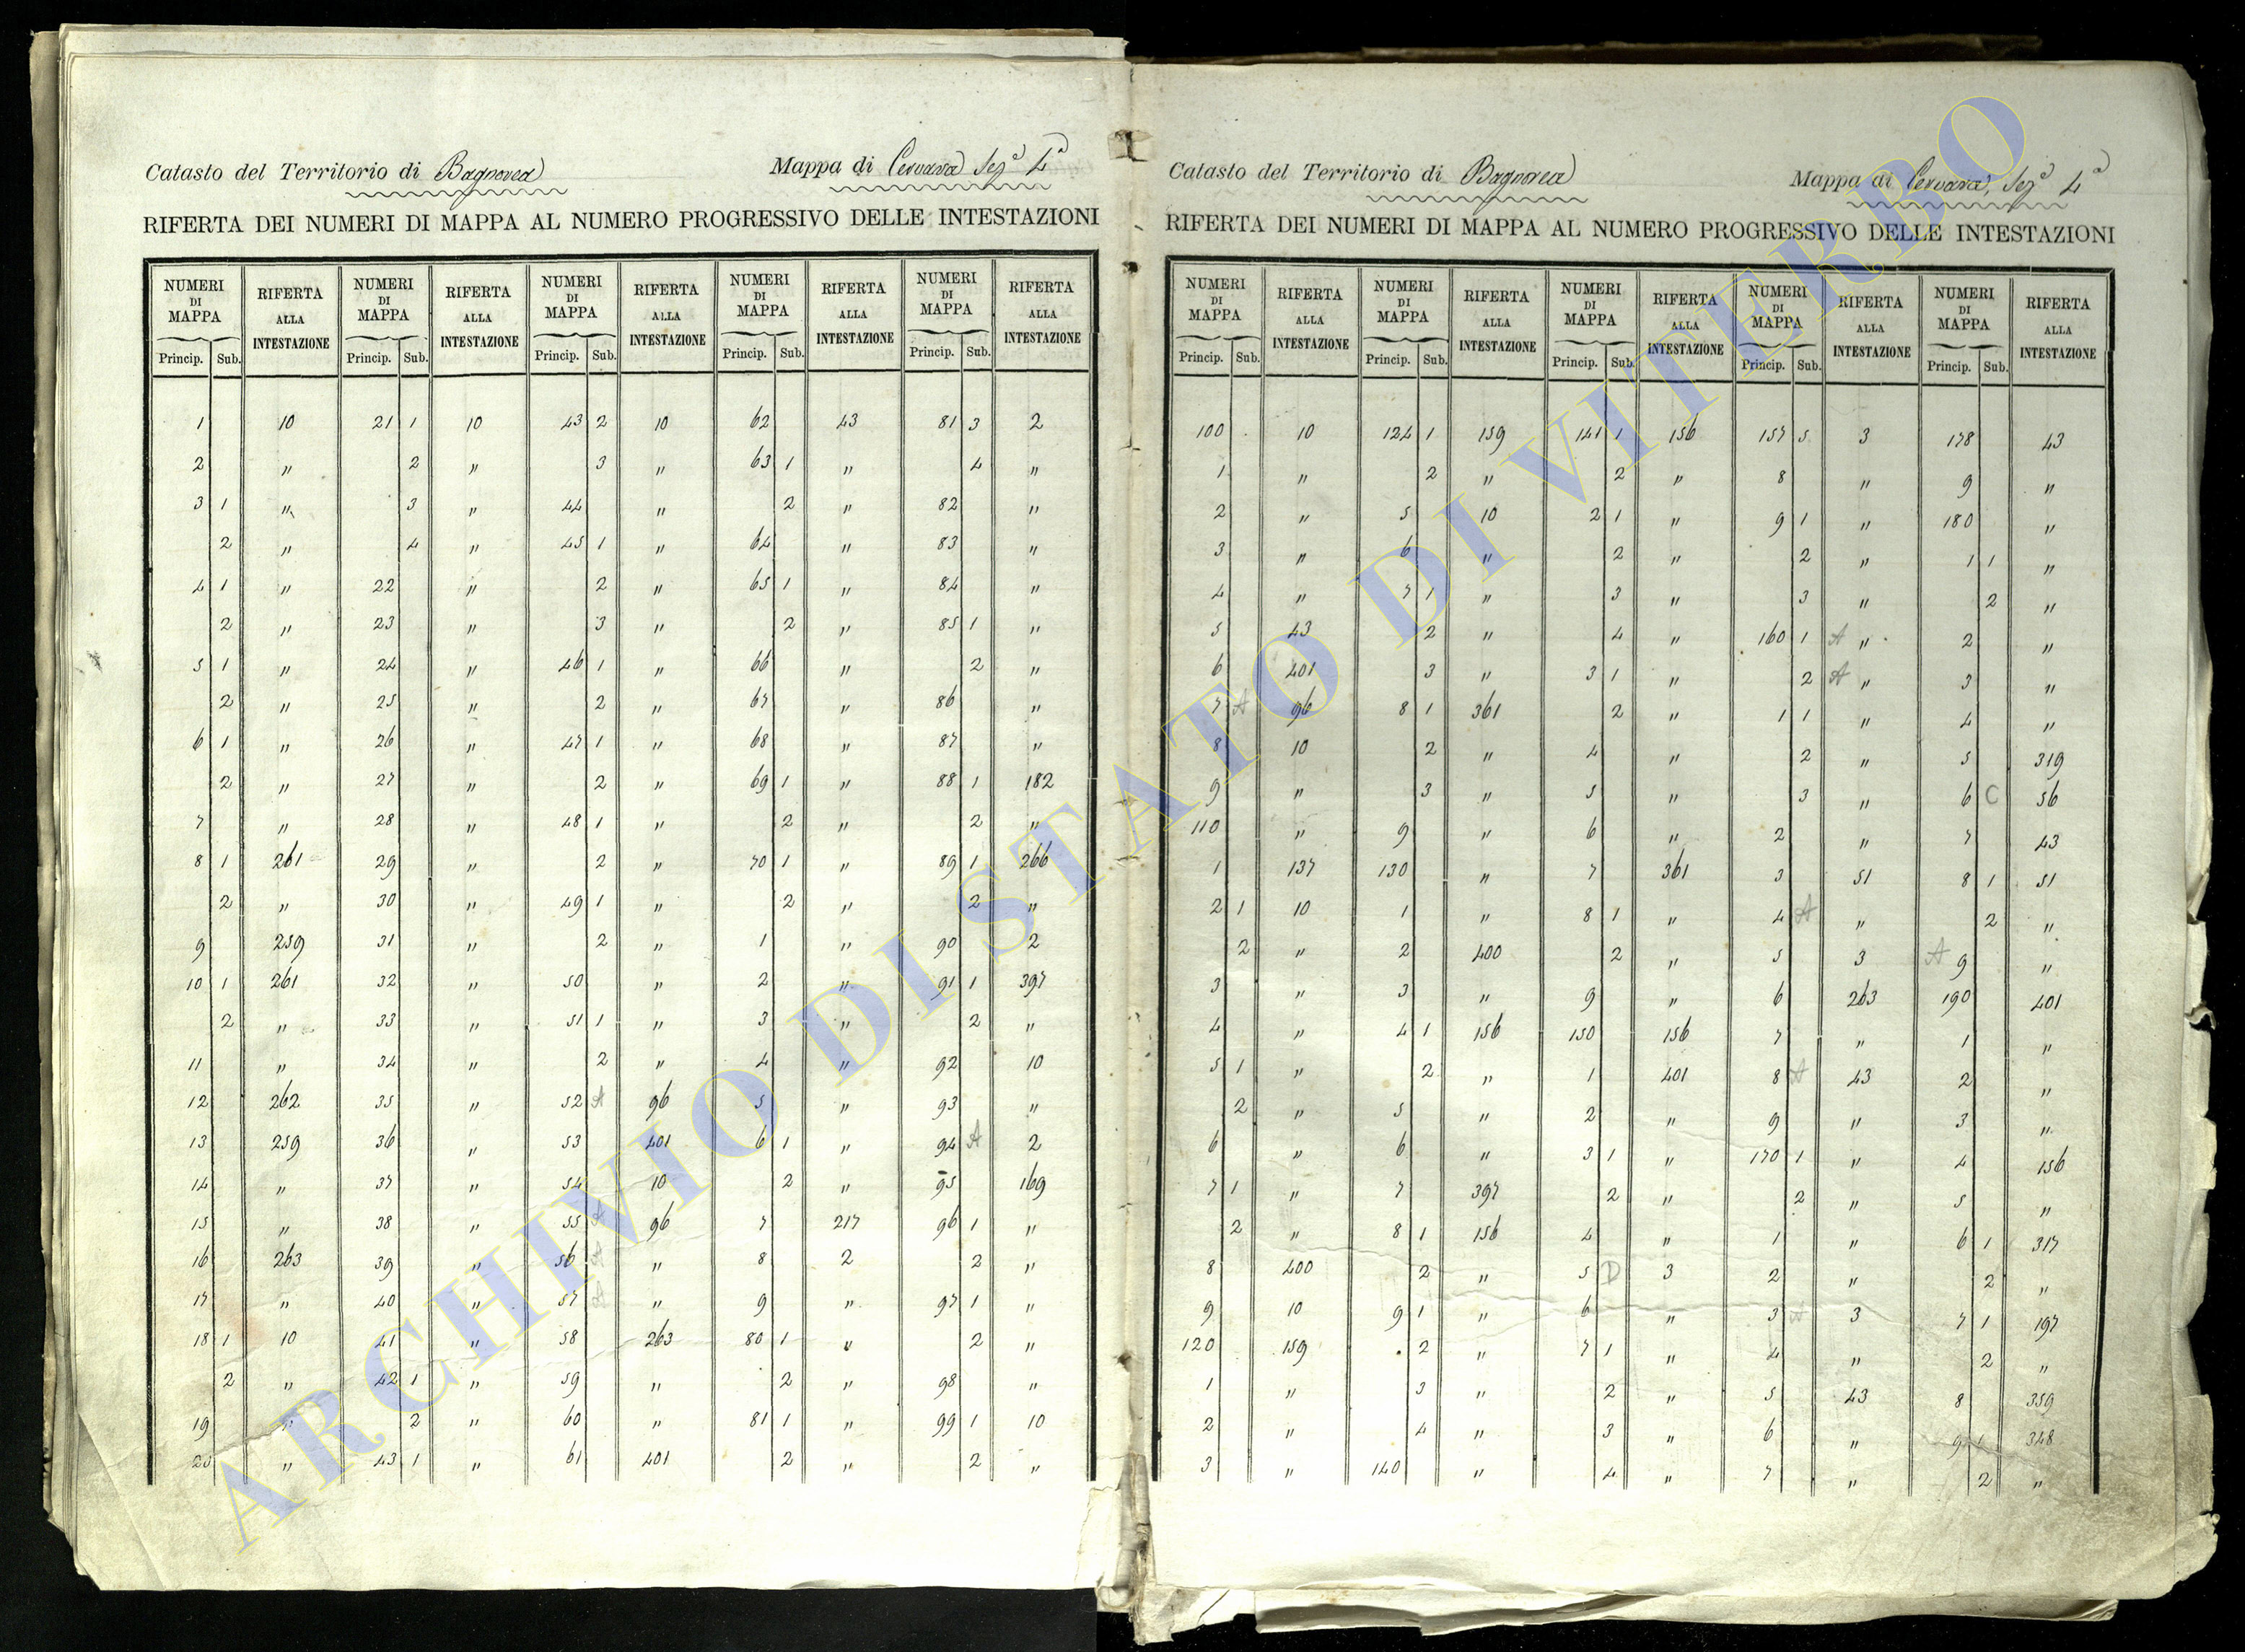 Catasto del Territorio di Bagnorea Mappa di Cervara Sez.e 4a
RIFERTA DEI NUMERI DI MAPPA AL NUMERO PROGRESSIVO DELLE INTESTAZIONI
NUMERI DI MAPPA RIFERTA ALLA INTESTAZIONE NUMERI DI MAPPA RIFERTA ALLA INTESTAZIONE NUMERI DI MAPPA RIFERTA ALLA INTESTAZIONE NUMERI DI MAPPA RIFERTA ALLA INTESTAZIONE NUMERI DI MAPPA RIFERTA ALLA INTESTAZIONE
Princip. Sub. Princip. Sub. Princip. Sub. Princip. Sub. Princip. Sub.
1 10 21 1 10 43 2 10 62 43 81 3 2
2 " 2 " 3 " 63 1 " 4 "
3 1 " 3 " 44 " 2 " 82 "
2 " 4 " 45 1 " 64 " 83 "
4 1 " 22 " 2 " 65 1 " 84 "
2 " 23 " 3 " 2 " 85 1 "
5 1 " 24 " 46 1 " 66 " 2 "
2 " 25 " 2 " 67 " 86 "
6 1 " 26 " 47 1 " 68 " 87 "
2 " 27 " 2 " 69 1 " 88 1 182
7 " 28 " 48 1 " 2 " 2 "
8 1 261 29 " 2 " 70 1 " 89 1 266
2 " 30 " 49 1 " 2 " 2 "
9 259 31 " 2 " 1 " 90 2
10 1 261 32 " 50 " 2 " 91 1 397
2 " 33 " 51 1 " 3 " 2 "
11 " 34 " 2 " 4 " 92 10
12 262 35 " 52 A 96 5 " 93 "
13 259 36 " 53 401 6 1 " 94 A 2
14 " 37 " 54 10 2 " 95 169
15 " 38 " 55 A 96 7 217 96 1 "
16 263 39 " 56 A " 8 2 2 "
17 " 40 " 57 A " 9 " 97 1 "
18 1 10 41 " 58 263 80 1 " 2 "
2 " 42 1 " 59 " 2 " 98 "
19 " 2 " 60 " 81 1 " 99 1 10
20 " 43 1 " 61 401 2 " 2 "
Catasto del Territorio di Bagnorea Mappa di Cervara, Sez.e 4a
RIFERTA DEI NUMERI DI MAPPA AL NUMERO PROGRESSIVO DELLE INTESTAZIONI
NUMERI DI MAPPA RIFERTA ALLA INTESTAZIONE NUMERI DI MAPPA RIFERTA ALLA INTESTAZIONE NUMERI DI MAPPA RIFERTA ALLA INTESTAZIONE NUMERI DI MAPPA RIFERTA ALLA INTESTAZIONE NUMERI DI MAPPA RIFERTA ALLA INTESTAZIONE
Princip. Sub. Princip. Sub. Princip. Sub. Princip. Sub. Princip. Sub.
100 10 124 1 159 141 1 156 157 5 3 178 43
1 " 2 " 2 " 8 " 9 "
2 " 5 10 2 1 " 9 1 " 180 "
3 " 6 " 2 " 2 " 1 1 "
4 " 7 1 " 3 " 3 " 2 "
5 43 2 " 4 " 160 1 A " 2 "
6 401 3 " 3 1 " 2 A " 3 "
7 A 96 8 1 361 2 " 1 1 " 4 "
8 10 2 " 4 " 2 " 5 319
9 " 3 " 5 " 3 " 6 C 56
110 " 9 " 6 " 2 " 7 43
1 137 130 " 7 361 3 51 8 1 51
2 1 10 1 " 8 1 " 4 A " 2 "
2 " 2 400 2 " 5 3 A 9 "
3 " 3 " 9 " 6 263 190 401
4 " 4 1 156 150 156 7 " 1 "
5 1 " 2 " 1 401 8 A 43 2 "
2 " 5 " 2 " 9 " 3 "
6 " 6 " 3 1 " 170 1 " 4 156
7 1 " 7 397 2 " 2 " 5 "
2 " 8 1 156 4 " 1 " 6 1 317
8 400 2 " 5 D 3 2 " 2 "
9 10 9 1 " 6 " 3 A 3 7 1 197
120 159 2 " 7 1 " 4 " 2 "
1 " 3 " 2 " 5 43 8 359
2 " 4 " 3 " 6 " 9 1 348
3 " 140 " 4 " 7 " 2 "
ARCHIVIO DI STATO DI VITERBO